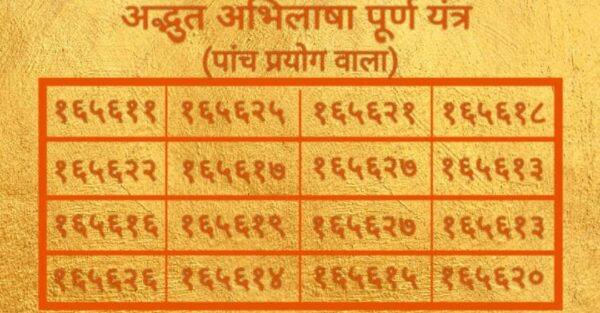 अद्भुत अभिलाषा पूर्ण यंत्र
(पांच प्रयोग वाला)
१६५६११ १६५६२५ १६५६२१ १६५६१८
१६५६२२ १६५६१७ १६५६२७ १६५६१३
१६५६१६ १६५६१९ १६५६२७ १६५६१३
१६५६२६ १६५६१४ १६५६१५ १६५६२०